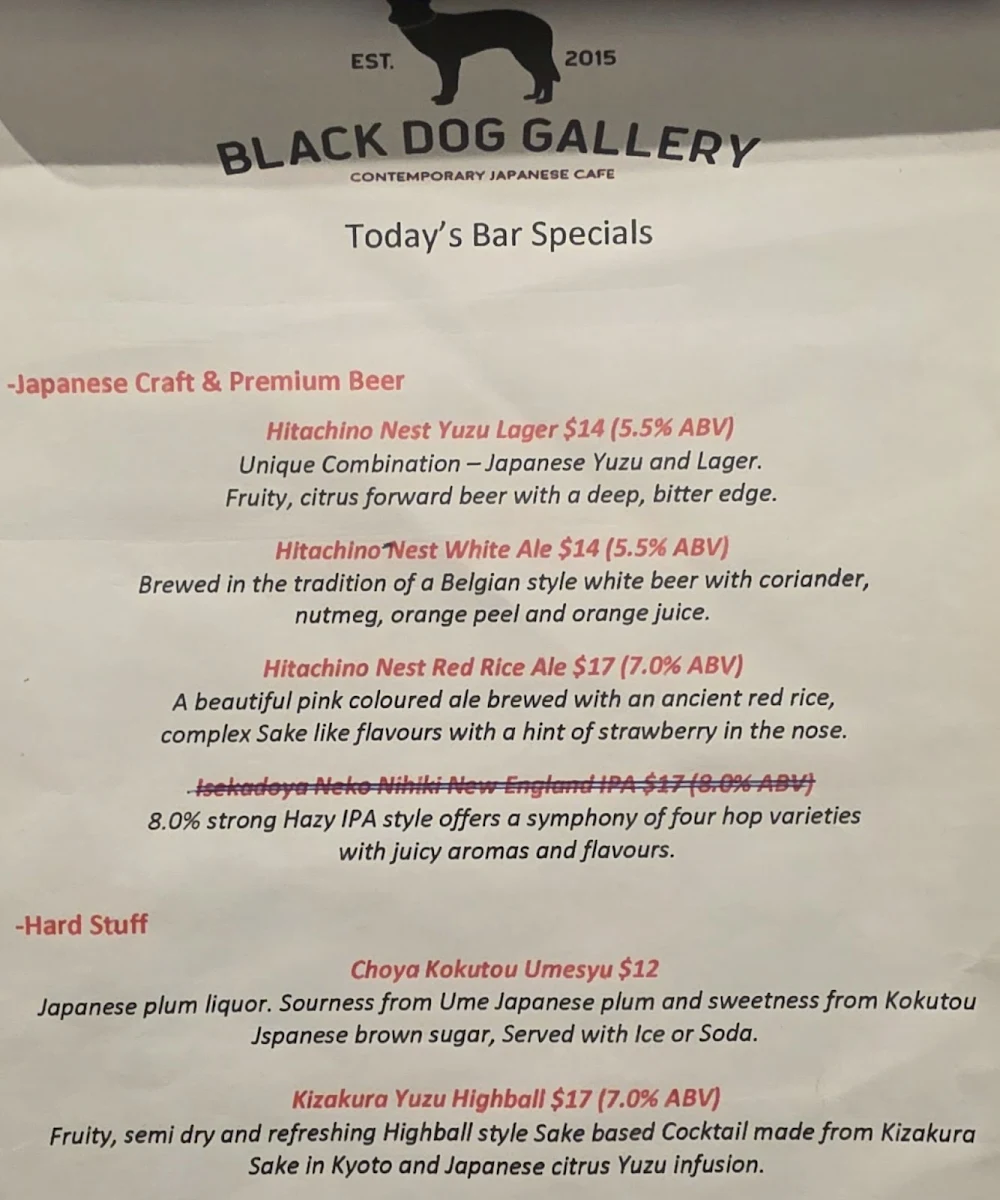 EST. 2015
BLACK DOG GALLERY
CONTEMPORARY JAPANESE CAFE
Today's Bar Specials
-Japanese Craft & Premium Beer
Hitachino Nest Yuzu Lager $14 (5.5% ABV)
Unique Combination – Japanese Yuzu and Lager.
Fruity, citrus forward beer with a deep, bitter edge.
Hitachino Nest White Ale $14 (5.5% ABV)
Brewed in the tradition of a Belgian style white beer with coriander,
nutmeg, orange peel and orange juice.
Hitachino Nest Red Rice Ale $17 (7.0% ABV)
A beautiful pink coloured ale brewed with an ancient red rice,
complex Sake like flavours with a hint of strawberry in the nose.
Isekadoya Neko Nihiki New England IPA $17 (8.0% ABV)
8.0% strong Hazy IPA style offers a symphony of four hop varieties
with juicy aromas and flavours.
-Hard Stuff
Choya Kokutou Umesyu $12
Japanese plum liquor. Sourness from Ume Japanese plum and sweetness from Kokutou
Jspanese brown sugar, Served with Ice or Soda.
Kizakura Yuzu Highball $17 (7.0% ABV)
Fruity, semi dry and refreshing Highball style Sake based Cocktail made from Kizakura
Sake in Kyoto and Japanese citrus Yuzu infusion.